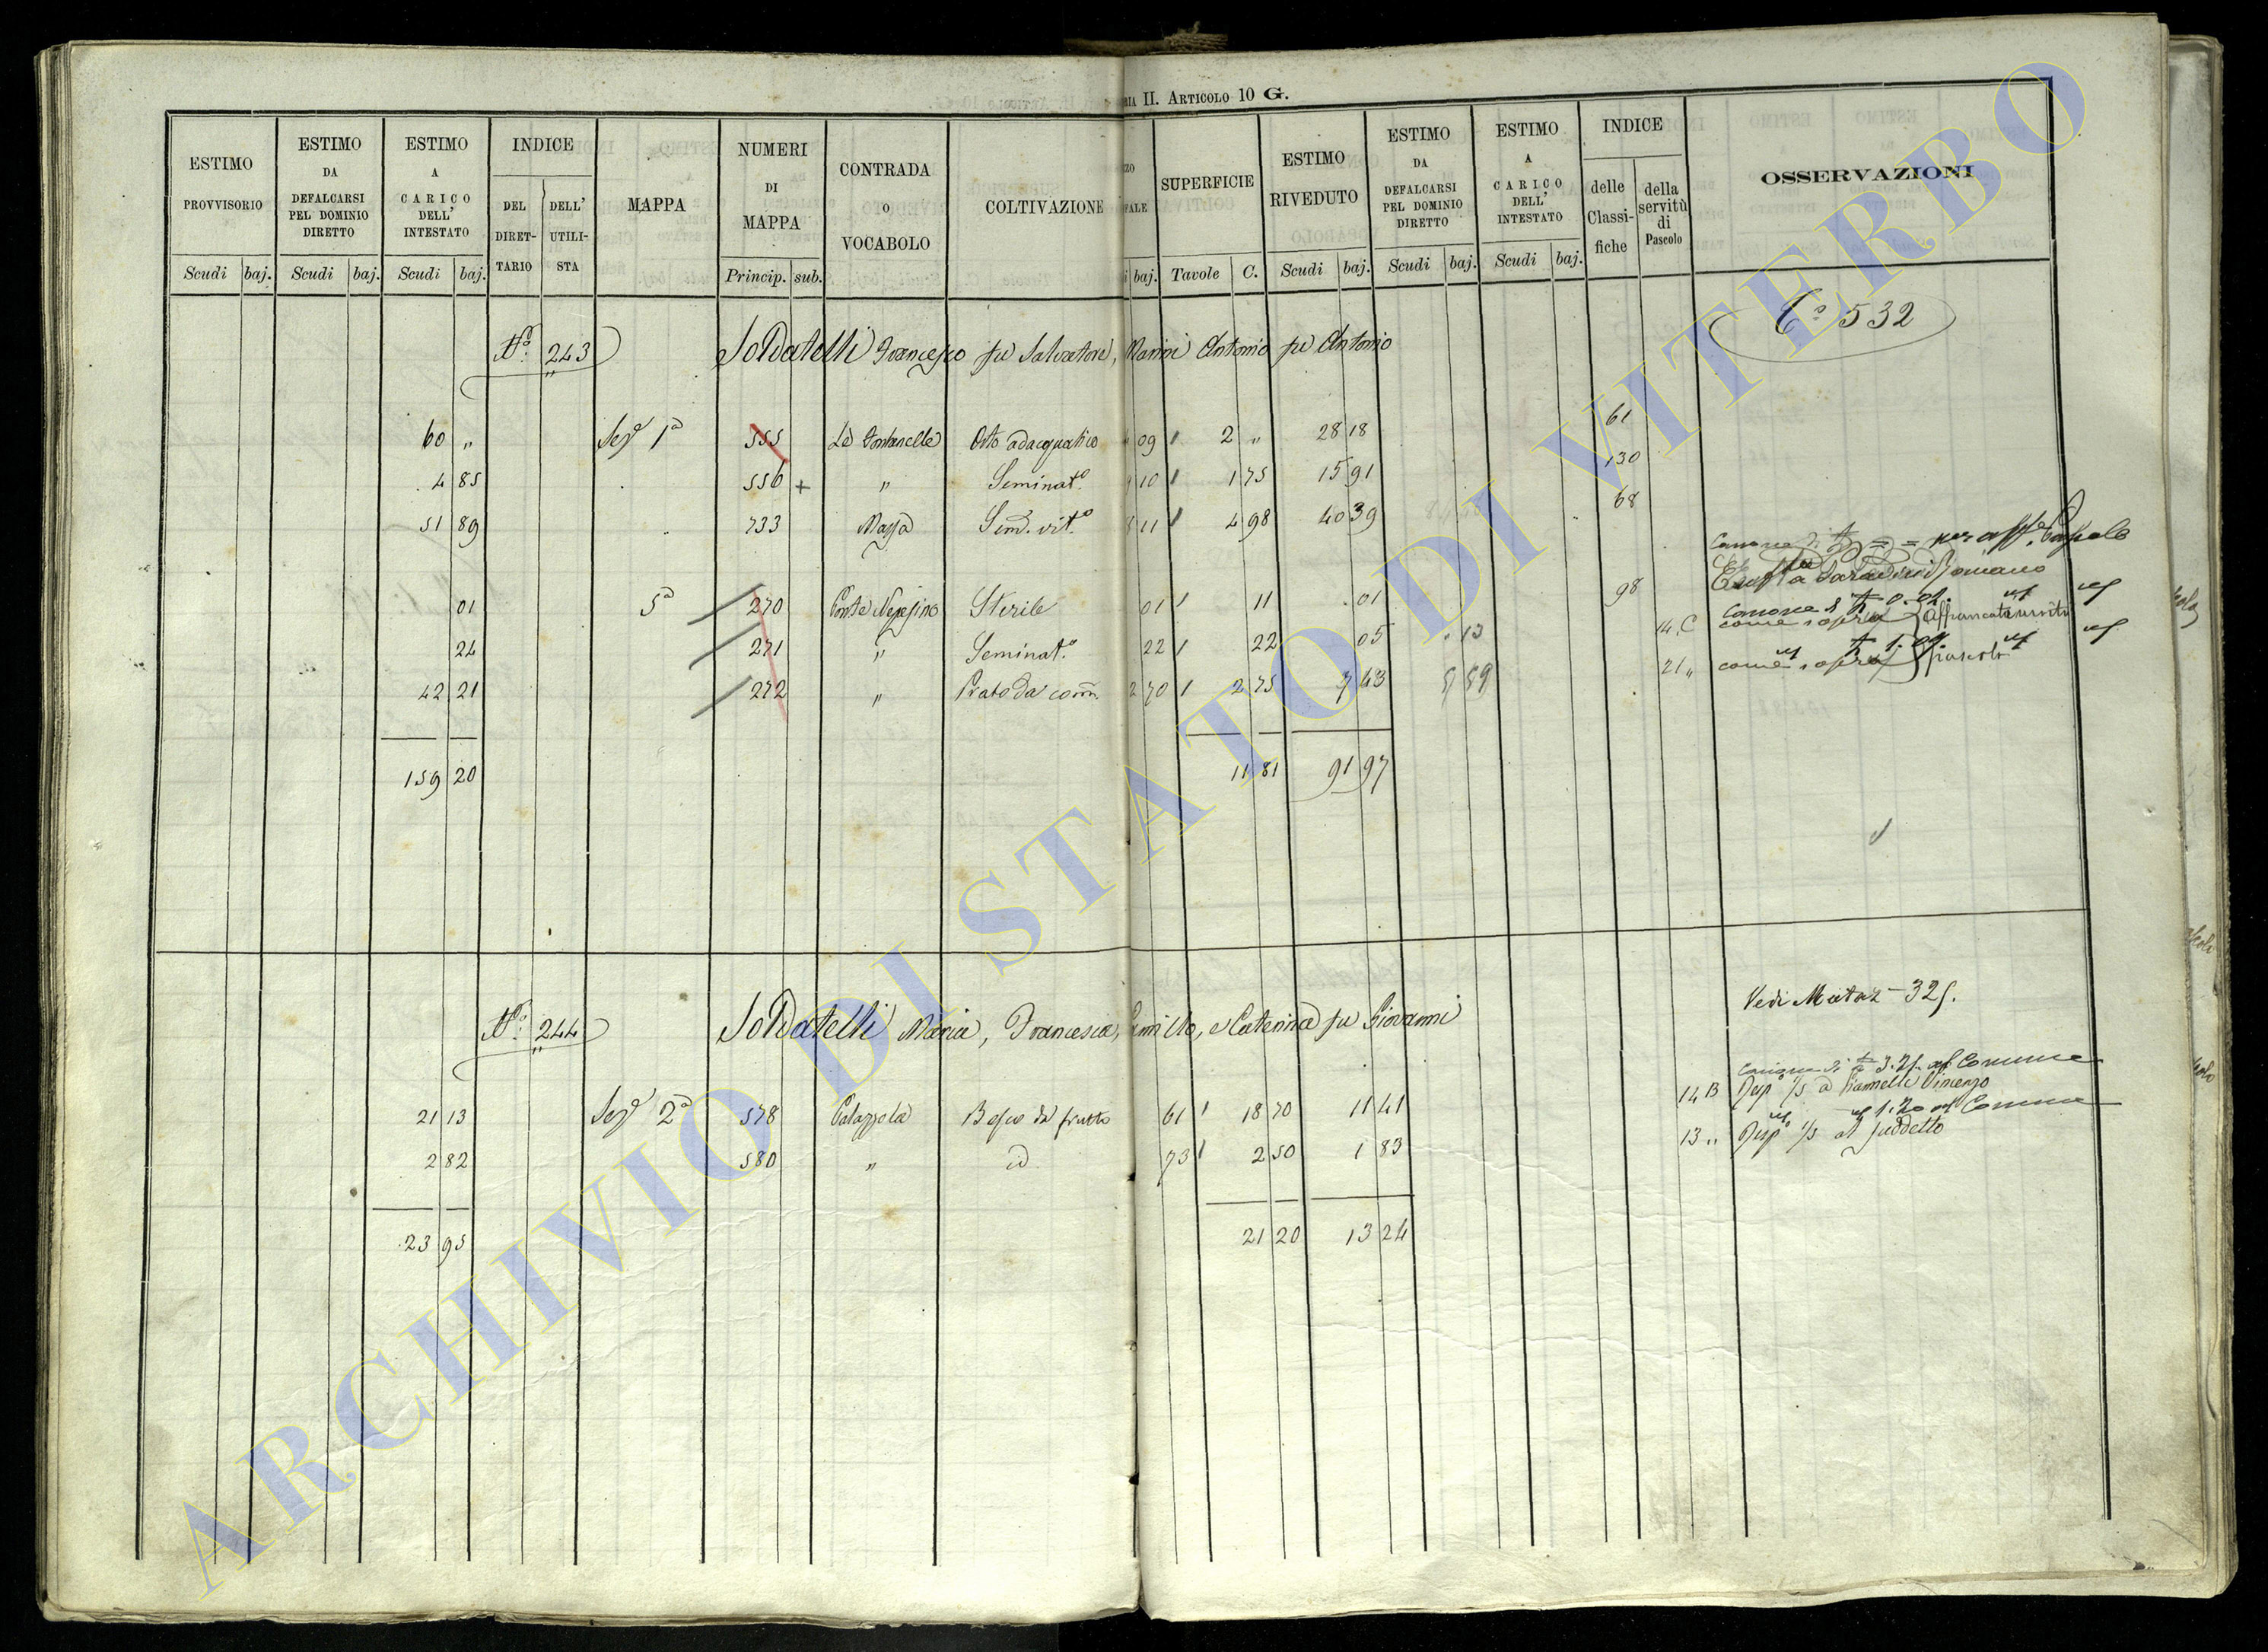 RIA II. ARTICOLO 10 G.
ESTIMO PROVVISORIO Scudi baj.
ESTIMO DA DEFALCARSI PEL DOMINIO DIRETTO Scudi baj.
ESTIMO A CARICO DELL' INTESTATO Scudi baj.
INDICE DEL DIRET-TARIO DELL' UTILI-STA
MAPPA
NUMERI DI MAPPA Princip. sub.
CONTRADA O VOCABOLO
COLTIVAZIONE
baj.
SUPERFICIE Tavole C.
ESTIMO RIVEDUTO Scudi baj.
ESTIMO DA DEFALCARSI PEL DOMINIO DIRETTO Scudi baj.
ESTIMO A CARICO DELL' INTESTATO Scudi baj.
INDICE delle Classi-fiche della servitù di Pascolo
OSSERVAZIONI
Co 532
No. 243 Soldatelli Francesco fu Salvatore, Nanni Antonio fu Antonio
60 " Seze 1a 555 Le Fontanelle Orto adacquativo 09 2 " 28 18 61
4 85 556 + " Seminat.o 10 1 75 15 91 130
51 89 733 Massa Sem. vit.o 11 4 98 40 39 68
01 5a 270 Ponte Nepesino Sterile 01 11 01 98
24 271 " Seminat.o 22 22 05 13 14 C come sopra Affrancata servitù
42 21 272 " Prato da com. 2 70 2 75 7 43 21 " come sopra pascolo
159 20 11 81 91 97
Vedi Mutaz - 325.
No. 244 Soldatelli Maria, Francesca, Camillo, e Caterina fu Giovanni
21 13 Seze 2a 578 Bosco da frutto 61 18 70 11 41 14 B Risp 1/5 a Vincenzo
2 82 580 " id 73 2 50 1 83 13 " Risp 1/5 al suddetto
23 95 21 20 13 24
ARCHIVIO DI STATO DI VITERBO